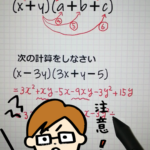 (x+y)(a+b+c)
④
⑤
⑥
次の計算をしなさい
(x-3y)(3x+y-5)
=3x²+xy-5x-9xy-3y²+15y
注意!